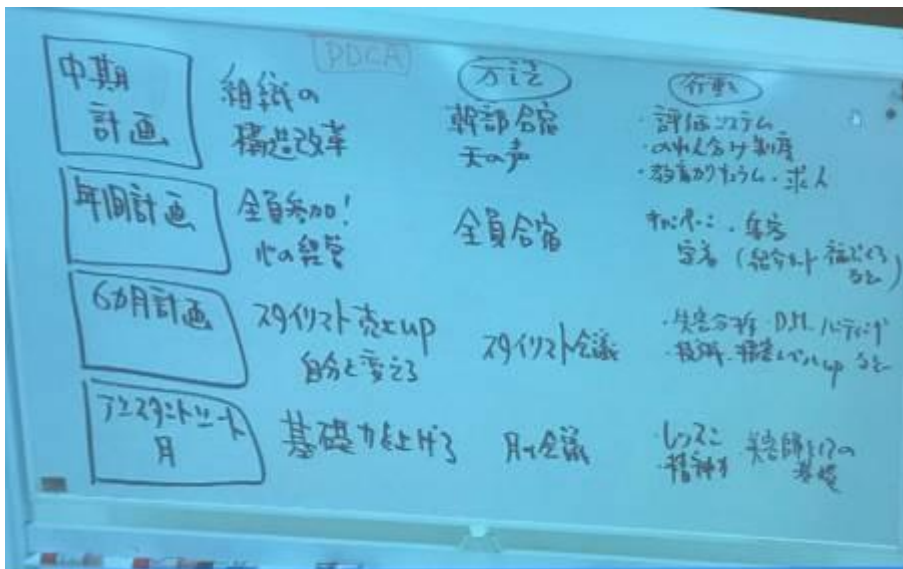 PDCA
方法
行動
中期
計画
組織の
構造改革
幹部合宿
天の声
・評価システム
・のれん分け制度
・教育カリキュラム・求人
年間計画
全員参加!
心の経営
全員合宿
キャンペーン・集客
6カ月計画
スタイリスト売上up
自分を変える
スタイリスト会議
・失客分析 D.M.
・技術・接客レベルup など
アシスタントシート
月
基礎力を上げる
月1会議
レッスン
・精神力 美容師としての
基礎